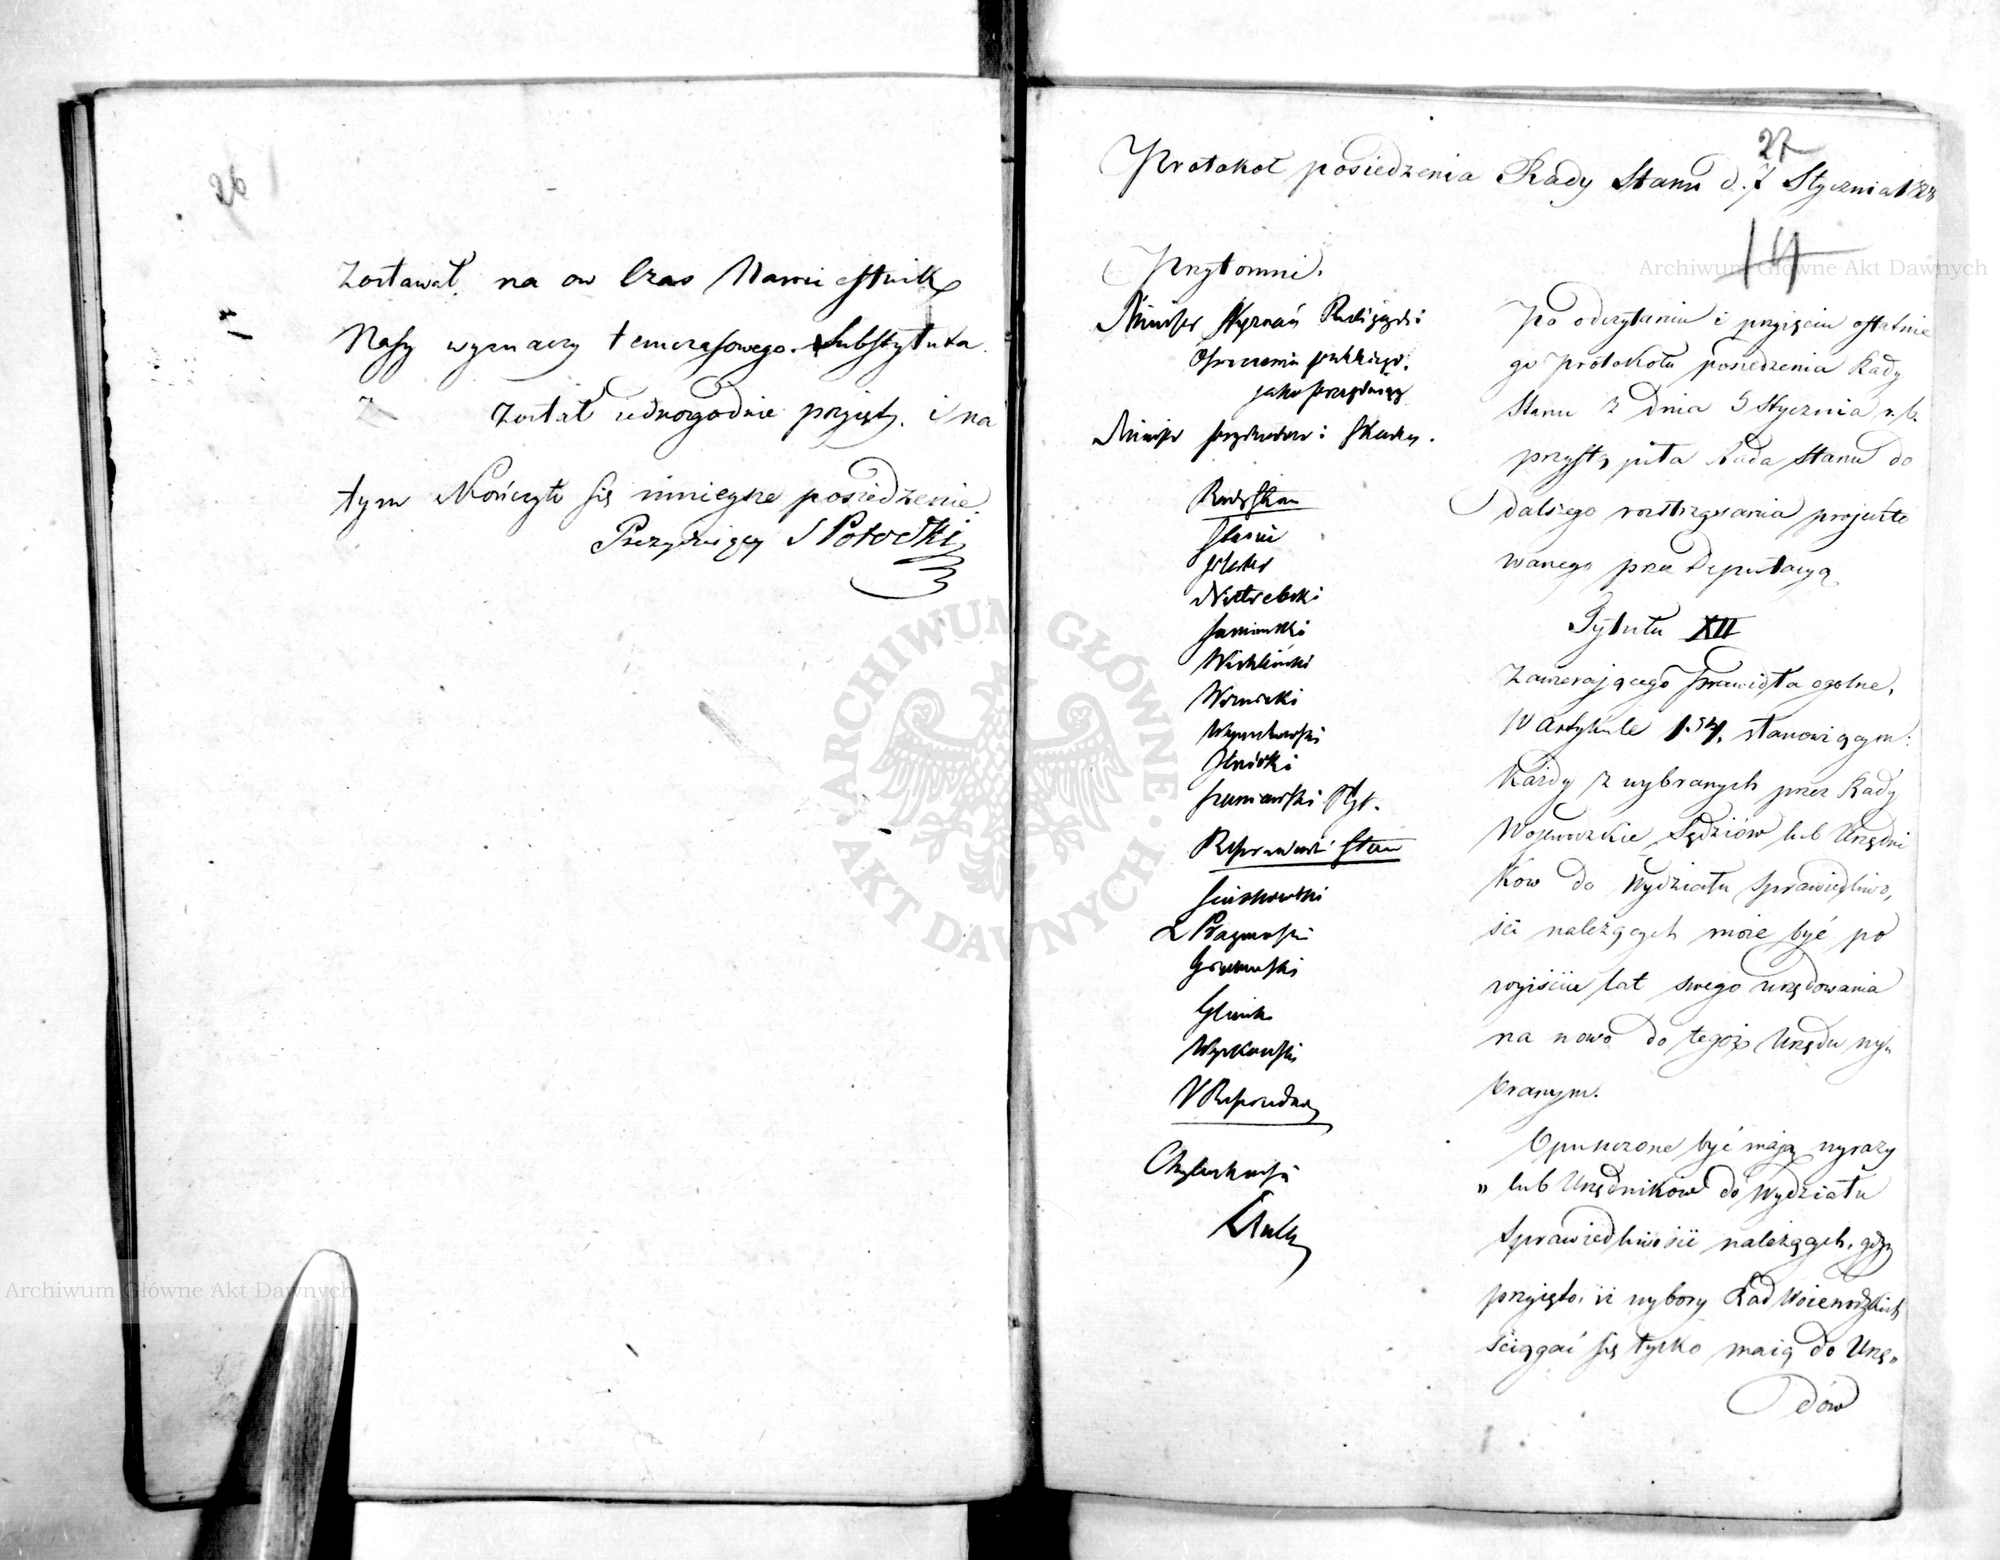 26
zostawał. na ow Czas Namiestnik
Nasz wyznaczy temczasowego Substytuta.
został iednozgodnie przyięty. i na
tym skończyło się ninieysze posiedzenie.
Prezyduiący S Potocki
27
Protokoł posiedzenia Rady Stanu d. 7 Stycznia
14
Przytomni.
Minister Wyznań Religiynych i
Oświecenia publicznego.
jako prezyduiący
Minister przychodów i Skarbu.
Radcy Stanu
Nietrebski
Wichliński
Woznicki
Wyczechowski
Staniszewski
Referendarze Stanu
Glinka
Wyczkowski
V Referendarz
Po odczytaniu i przyięciu ostatnie
go protokołu posiedzenia Rady
Stanu z dnia 5 Stycznia r. b.
przystąpiła Rada Stanu do
dalszego roztrząsania projekto
wanego przez Deputacyą
Tytułu XII
Zawierającego prawidła ogolne.
W Artykule 154. stanowiącym:
Każdy z wybranych przez Rady
Wojewodzkie Sędziów lub Urzędni
ków do Wydziału Sprawiedliwo,
ści należących może być po
wyiściu lat swego urzędowania
na nowo do tegoż Urzędu wy„
branym.
Opuszczone być mają wyrazy
„ lub Urzędników do Wydziału
Sprawiedliwości należących. gdyż
przyięto, iż wybory Rad Woiewodzkich
ściągać się tylko maią do Urzę„
dów
ARCHIWUM GŁÓWNE AKT DAWNYCH
Archiwum Główne Akt Dawnych
Archiwum Główne Akt Dawnych